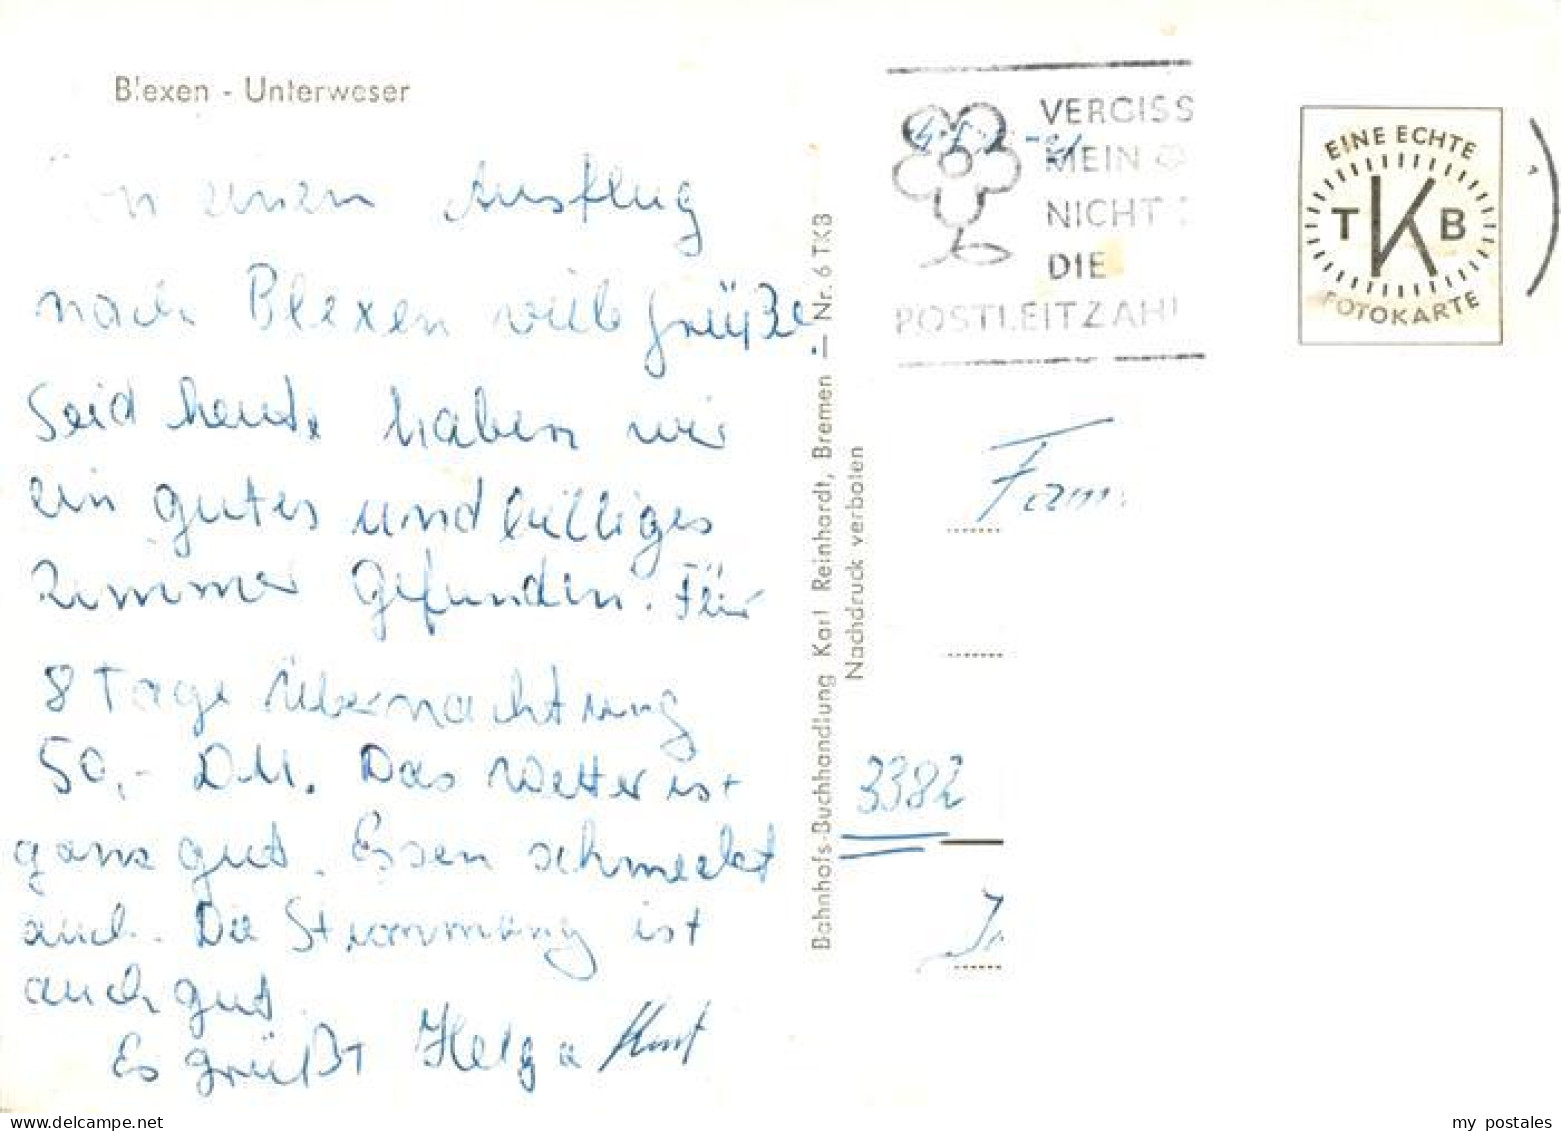 Blexen - Unterweser
einen Ausflug
nach Blexen viele Grüße.
Seid heute haben wir
ein gutes und billiges
Zimmer gefunden. Für
8 Tage Übernachtung
50,- DM. Das Wetter ist
ganz gut. Essen schmeckt
auch. Die Stimmung ist
auch gut.
Es grüßt Helga Kurt
Bahnhofs-Buchhandlung Karl Reinhardt, Bremen — Nr. 6 TKB
Nachdruck verboten
VERGISS
MEIN
NICHT
DIE
POSTLEITZAHL
EINE ECHTE
TKB
FOTOKARTE
Fam.
3382
my postales